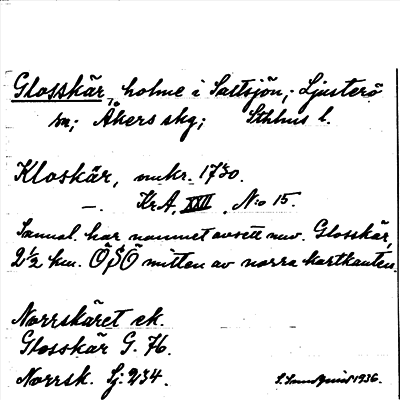 Glosskär, holme i Saltsjön; Ljusterö
sn; Åkers skg; Sthlms l.
Kloskär, mukr. 1730.
—. KrA, XXII, No 15.
Sannol. har namnet avsett nuv. Glosskär,
2½ km. ÖSÖ mitten av norra kartkanten.
Norrskäret ek.
Glosskär G. 76.
Norrsk. Sj: 234.
1936.